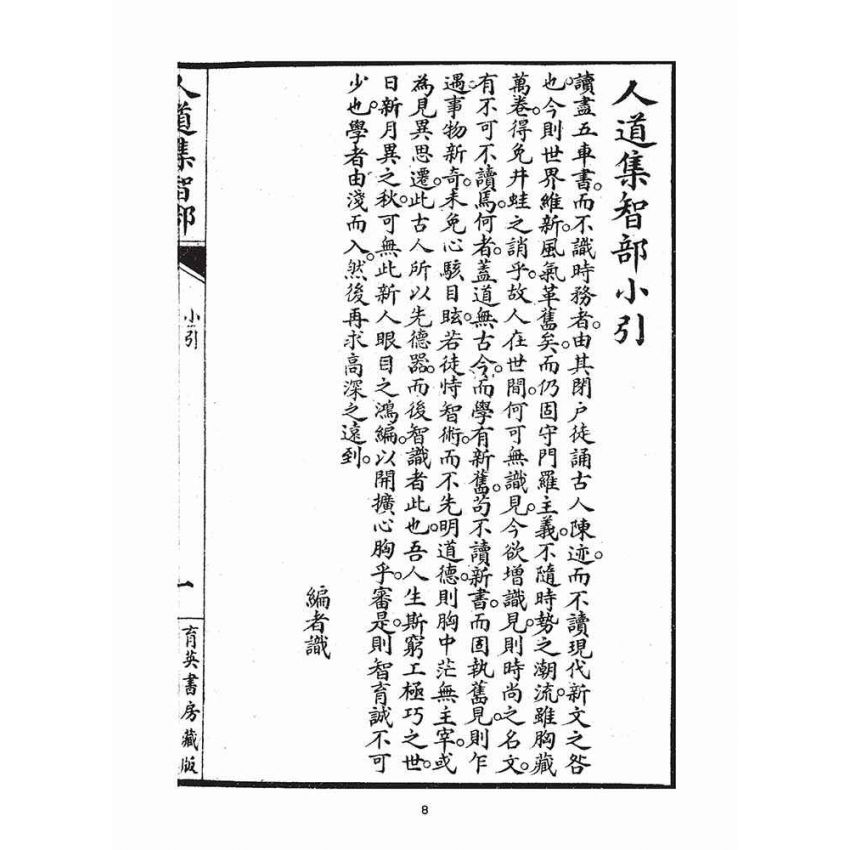 人道集智部小引
讀盡五車書。而不識時務者。由其閉戶徒誦古人陳迹。而不讀現代新文之咎
也。今則世界維新。風氣革舊矣。而仍固守門羅主義。不隨時勢之潮流。雖胸藏
萬卷。得免井蛙之誚乎。故人在世間。何可無識見。今欲增識見。則時尚之名文。
有不可不讀焉。何者。蓋道無古今。而學有新舊。苟不讀新書。而固執舊見。則乍
遇事物新奇。未免心駭目眩。若徒恃智術。而不先明道德。則胸中茫無主宰。或
為見異思遷。此古人所以先德器。而後智識者此也。吾人生斯窮工極巧之世。
日新月異之秋。可無此新人眼目之鴻編。以開擴心胸乎。審是。則智育誠不可
少也。學者由淺而入。然後再求高深之遠到。
編者識
人道集智部
小引
一
育英書房藏版
8